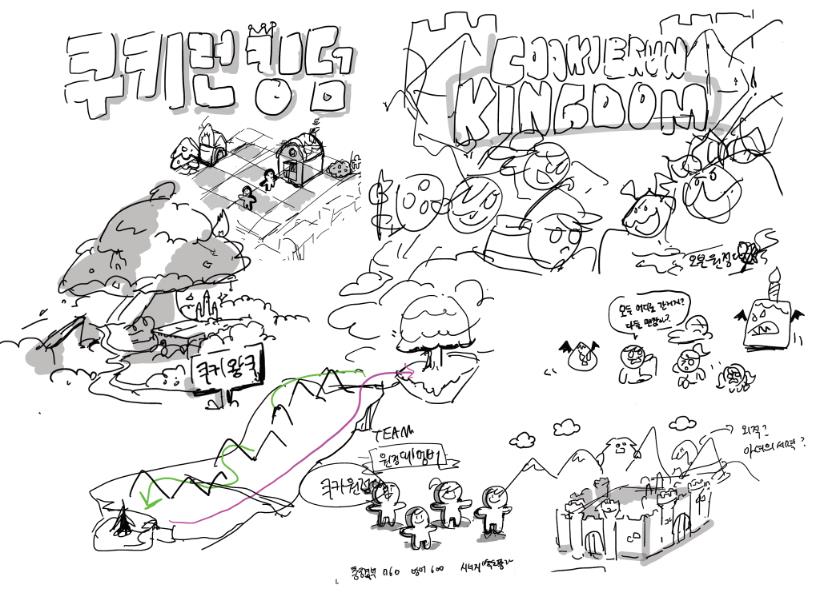 쿠키런 킹덤
COOKIERUN
KINGDOM
오븐 원정
모두 어디로 간거지?
쿠키왕국
TEAM
원정대 멤버
쿠키원정대
외적?
마녀의 세력?
760
600